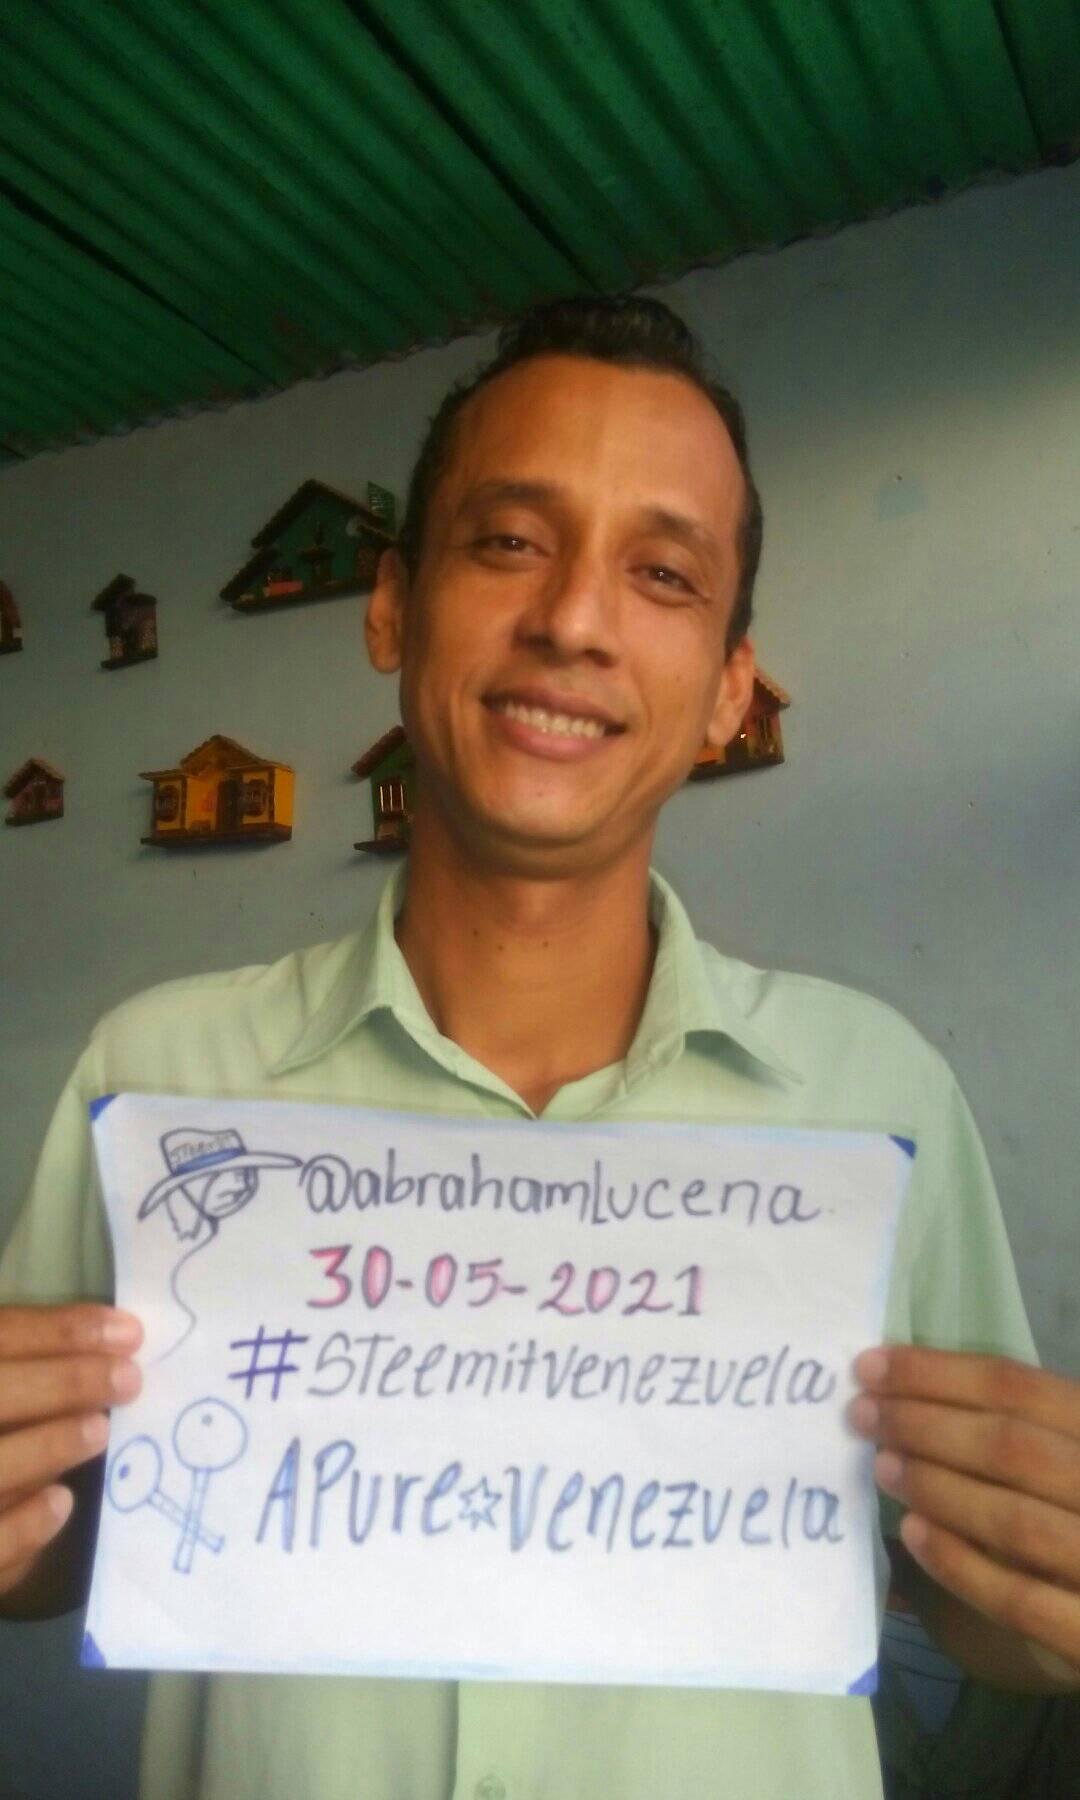 STEEMIT
@abrahamLucena
30-05-2021
#STeemitvenezuela
APure☆venezuela